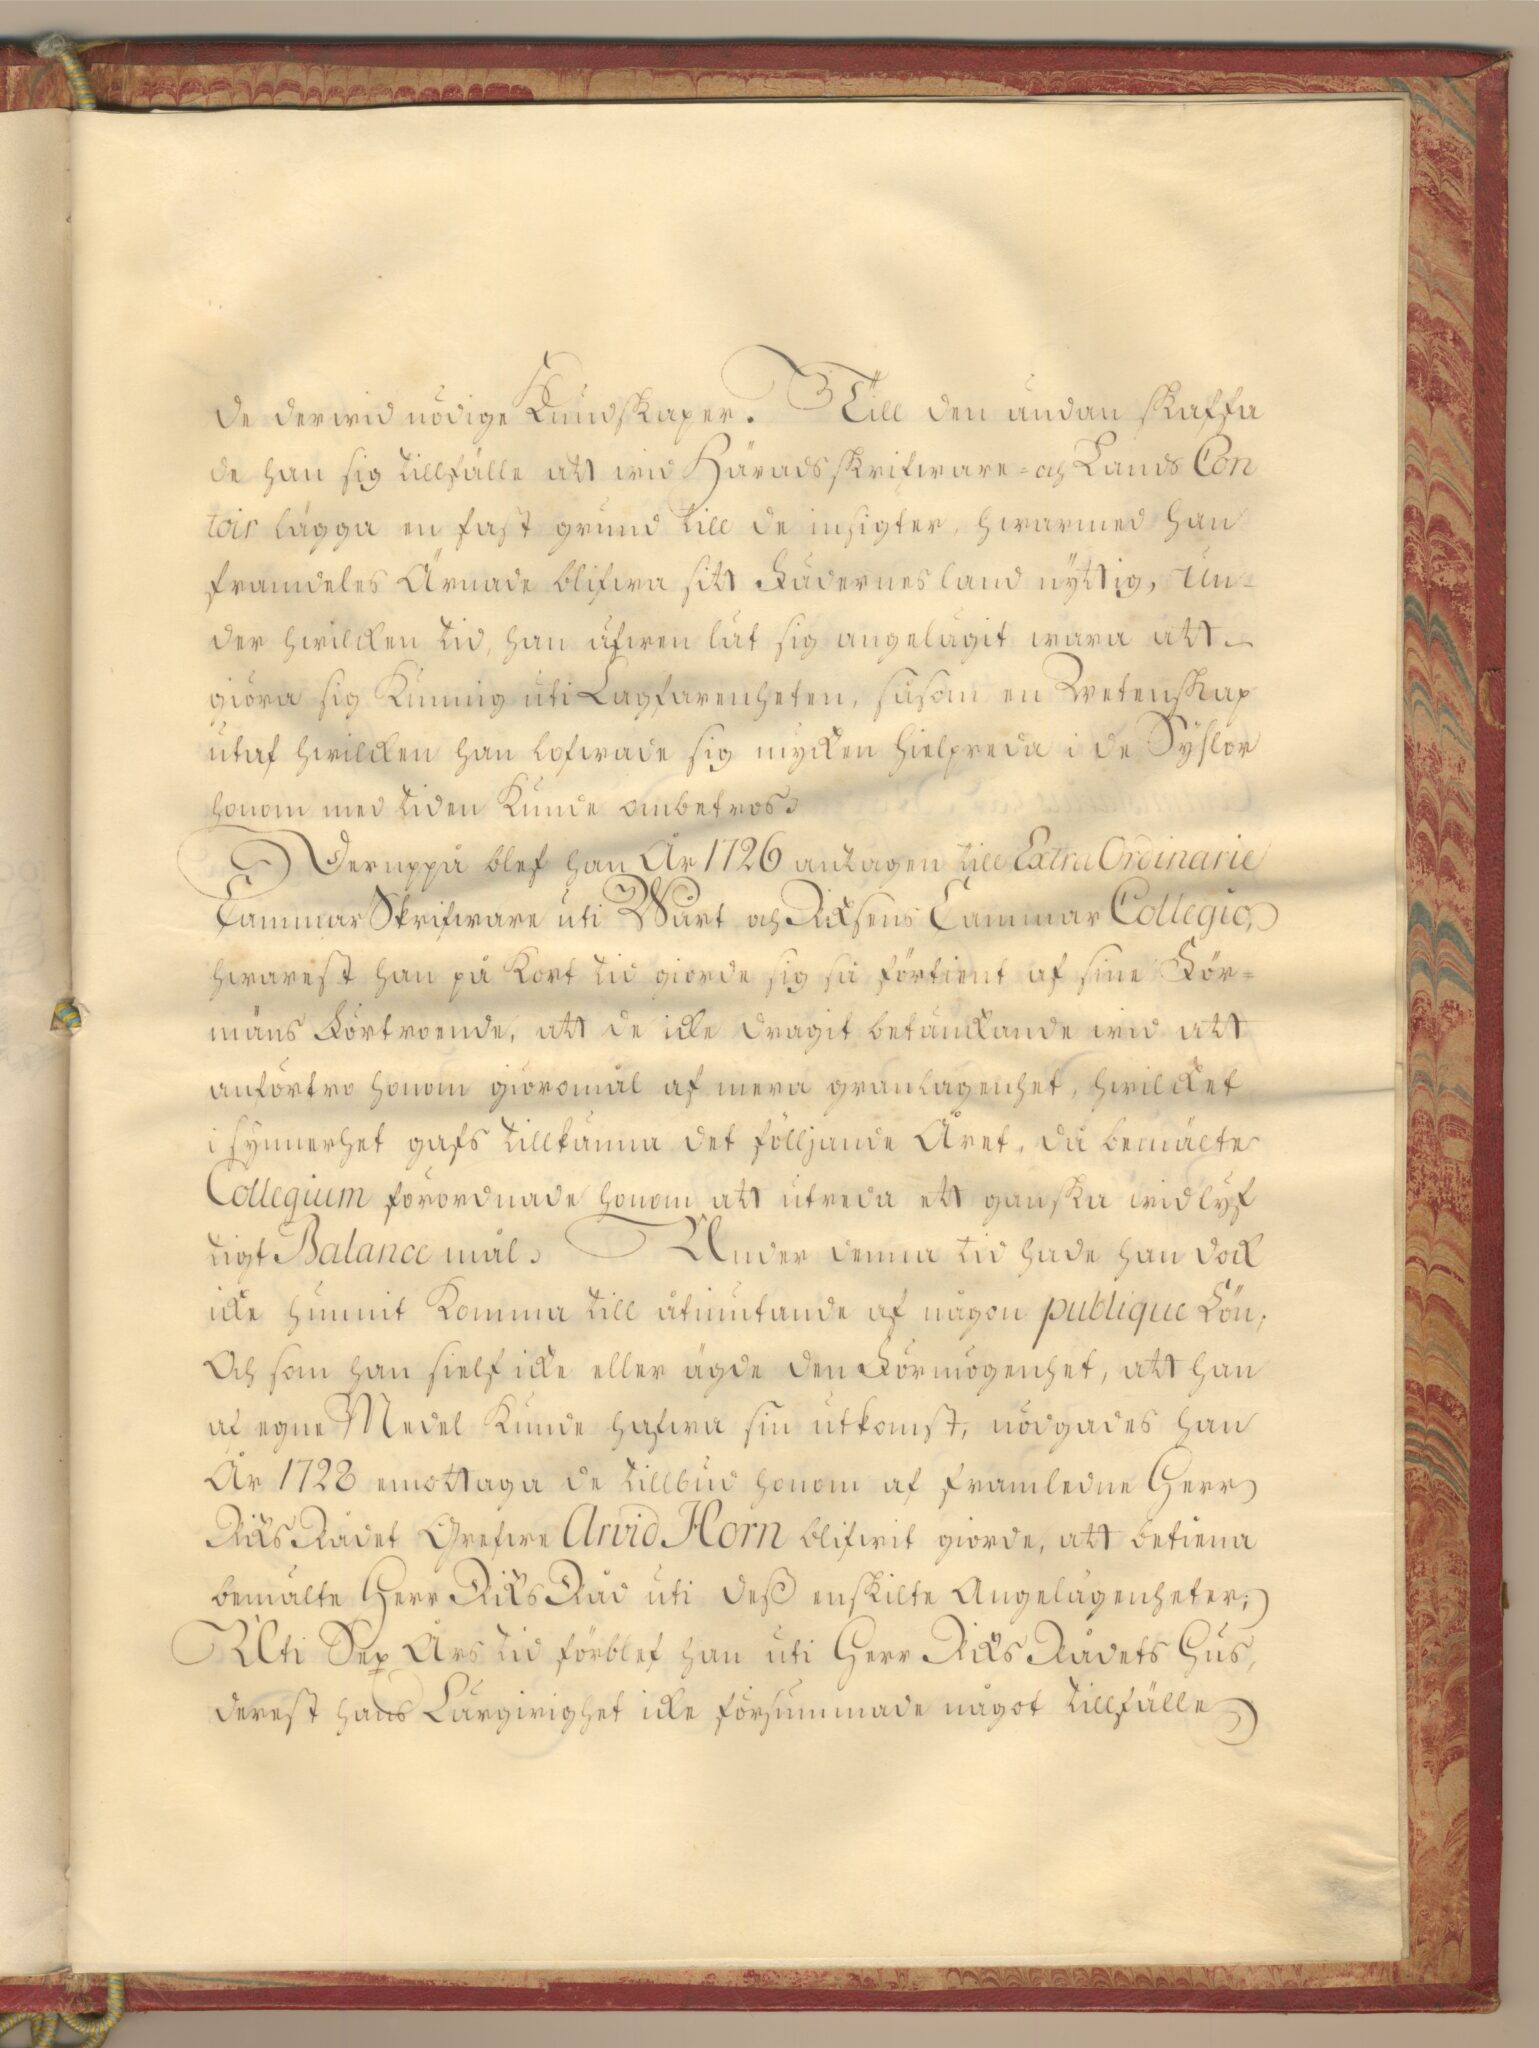 de derwid nödige Kundskaper. Till den ändan skaffa
de han sig tillfälle att wid Häradsskrifware- och Lands Con
toir lägga en fast grund till de insigter, hwarmed han
framdeles Ärnade blifwa sitt Fädernesland nyttig, Un-
der hwilcken tid, han äfwen lät sig angelägit wara att
giöra sig Kunnig uti Lagfarenheten, såsom en Wetenskap
utaf hwilcken han lofwade sig mycken hielpreda i de Sÿslor
honom med tiden Kunde ombetros.
Deruppå blef han År 1726 antagen till Extra Ordinarie
Cammar Skrifware uti Wårt och Riksens Cammar Collegio,
hwarest han på Kort tid giorde sig så förtient af sine För-
mäns Förtroende, att de icke dragit betänckande wid att
anförtro honom giöromål af mera granlagenhet, hwilcket
i synnerhet gafs tillkänna det följjande Året, då bemälte
Collegium förordnade honom att utreda ett ganska widlyf
tigt Balance mål. Under denna tid hade han dock
icke hunnit Komma till åtniutande af någon publique Lön;
Och som han sielf icke eller ägde den Förmögenhet, att han
af egne Medel Kunde hafwa sin utkomst, nödgades han
År 1728 emottaga de tillbud honom af framledne Herr
Riks Rådet Grefwe Arvid Horn blifwit giorde, att betiena
bemälte Herr Riks Råd uti deß enskilte Angelägenheter;
Uti Sex Års tid förblef han uti Herr Riks Rådets Hus,
derest hans Lärgirighet icke försummade något tillfälle